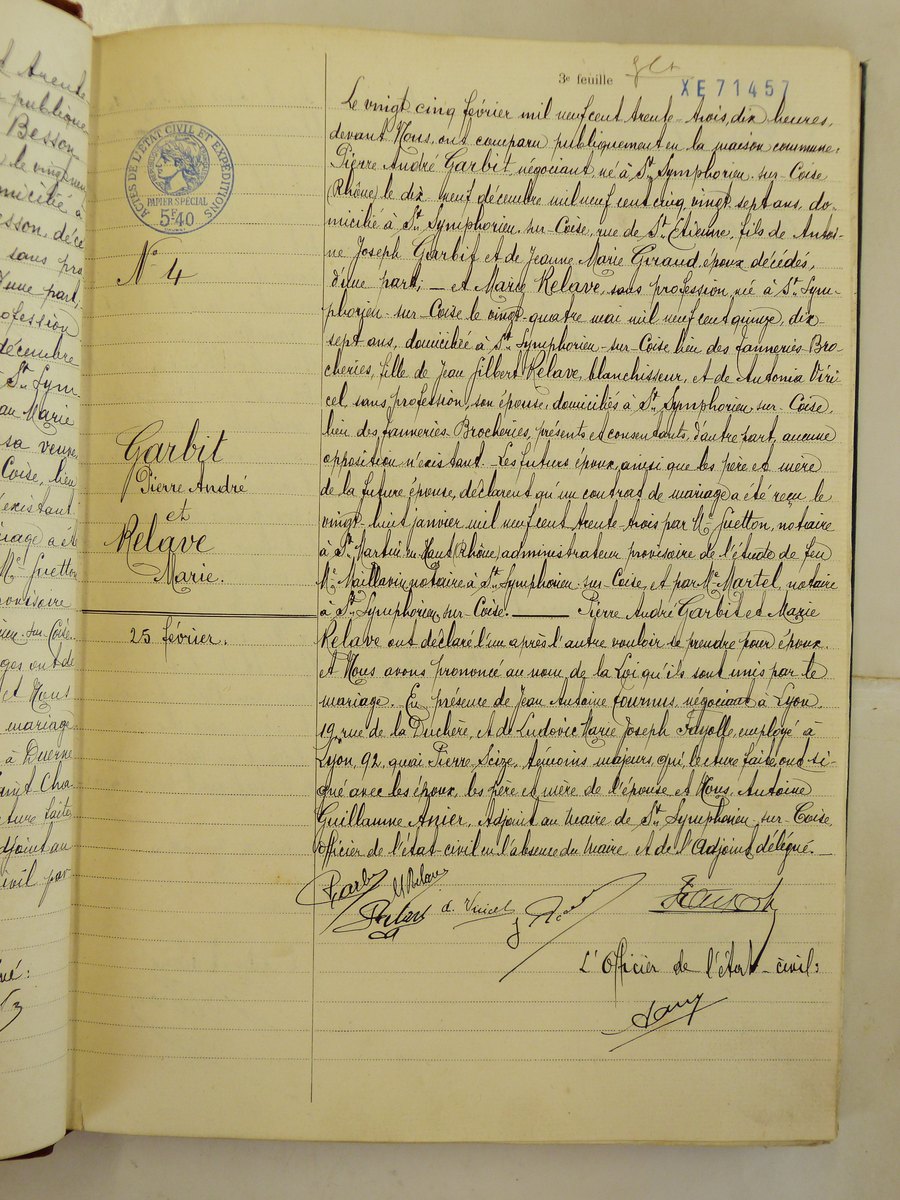 3e feuille
XE 71457
ACTES DE L'ETAT CIVIL ET EXPEDITIONS
PAPIER SPECIAL
5F40
N° 4
Garbit
Pierre André
et
Relave
Marie.
25 février.
Le vingt cinq février mil neuf cent trente-trois, dix heures,
devant Nous, ont comparu publiquement en la maison commune:
Pierre André Garbit, négociant, né à St Symphorien-sur-Coise
(Rhône) le dix neuf décembre mil neuf cent cinq vingt-sept ans, do-
micilié à St Symphorien-sur-Coise, rue de St Etienne, fils de Antoi-
ne Joseph Garbit et de Jeanne Marie Giraud, époux décédés,
d'une part; — et Marie Relave, sans profession, née à St Sym-
phorien-sur-Coise le vingt-quatre mai mil neuf cent quinze, dix-
sept ans, domiciliée à St Symphorien-sur-Coise, lieu des Tanneries-Bro-
cheries, fille de Jean Gilbert Relave, blanchisseur, et de Antonia Viri-
cel sans profession, son épouse, domiciliés à St Symphorien-sur-Coise,
lieu des Tanneries-Brocheries, présents et consentants, d'autre part, aucune
opposition n'existant. Les futurs époux, ainsi que les père et mère
de la future épouse, déclarent qu'un contrat de mariage a été reçu le
vingt-huit janvier mil neuf cent trente-trois par Me Guetton, notaire
à St Martin en Haut (Rhône) administrateur provisoire de l'étude de feu
Me Maillavin notaire à St Symphorien-sur-Coise, et par Me Martel, notaire
à St Symphorien-sur-Coise. — Pierre André Garbit et Marie
Relave ont déclaré l'un après l'autre vouloir se prendre pour époux
et Nous avons prononcé au nom de la Loi qu'ils sont unis par le
mariage. En présence de Jean Antoine Fournus, négociant à Lyon,
19, rue de la Duchère, et de Ludovic Marie Joseph Fayolle, employé à
Lyon, 92, quai Pierre Scize, témoins majeurs, qui, lecture faite, ont si-
gné avec les époux, les père et mère de l'épouse et Nous, Antoine
Guillaume Anier, Adjoint au Maire de St Symphorien-sur-Coise,
officier de l'état-civil en l'absence du Maire et de l'Adjoint délégué. —
Garbit
M Relave
Relave
a. Viricel
L'Officier de l'état-civil: